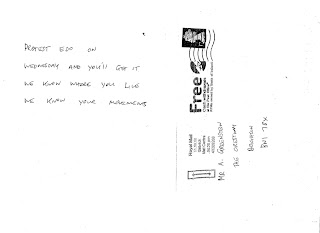 PROTEST EDO ON
WEDNESDAY AND YOU'LL GET IT
WE KNOW WHERE YOU LIVE
WE KNOW YOUR MOVEMENTS
Free
Royal Mail
MR A.
THE
BRIGHTON
BN1 7BX